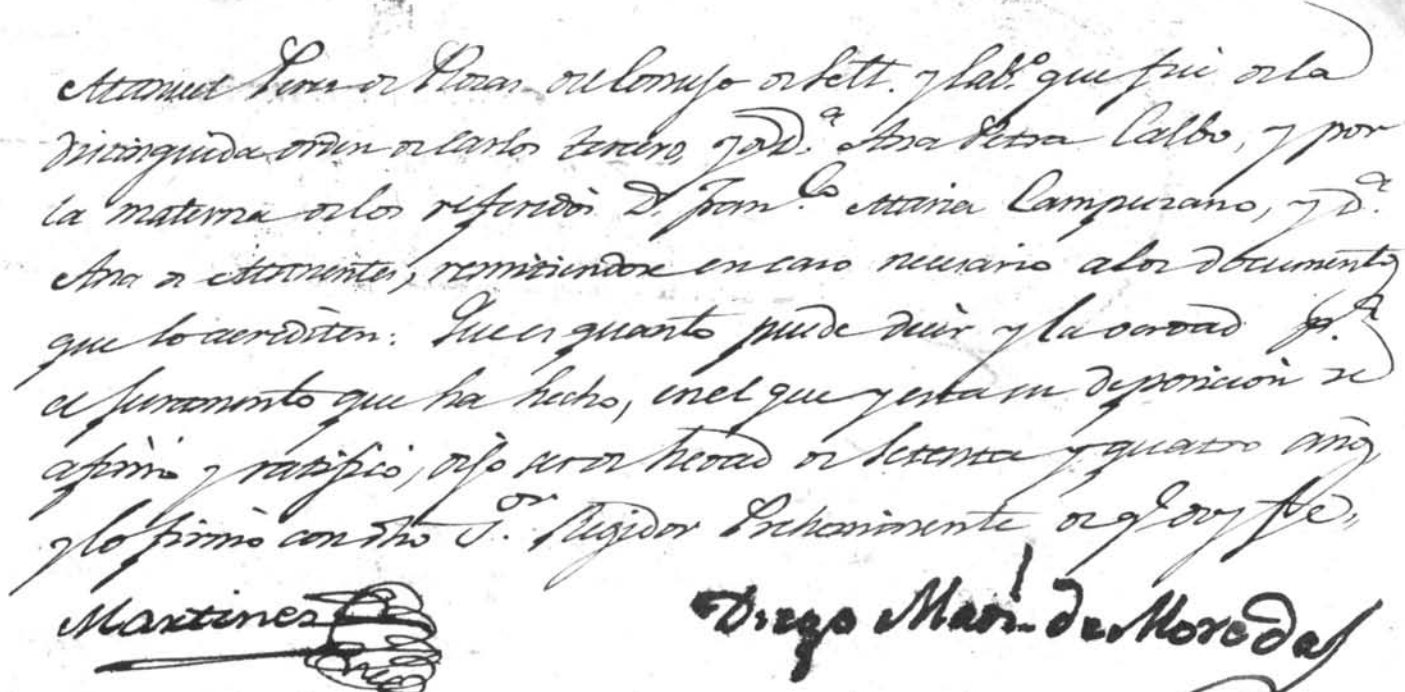 Manuel Perez de Rozas del Consejo de Sᵐ. y Cabº. que fue de la
distinguida orden de Carlos tercero, y de Dª. Ana Petra Calbo, y por
la materna de los referidos D. Franᶜᵒ Maria Campuzano, y Dª.
Ana de Marientes, remitiendose en caso necesario a los documentos
que lo acrediten: Que es quanto puede decir y la verdad pª.
el juramento que ha hecho, en el que y esta su deposicion se
afirmó y ratificó, dijo ser de hedad de setenta y quatro años,
y lo firmó con dho Sᵒʳ. Regidor Preheminente de q. doy fe.
Martinez
Diego Marn. de Moreda